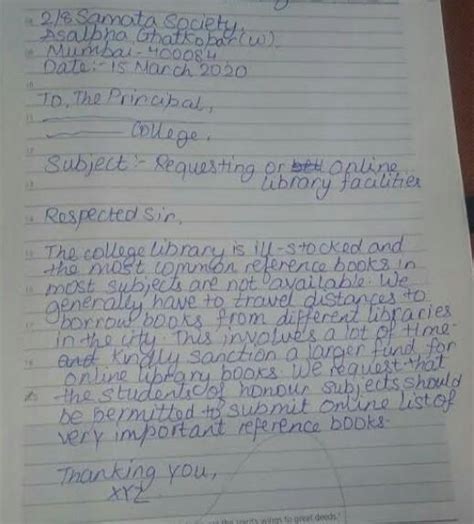 2/8 Samata Society,
Asalpha, Ghatkobar(W).
Mumbai - 400084
Date:- 15 March 2020
To, The Principal,
College.
Subject:- Requesting or online
library facilities
Respected Sir,
The college library is ill-stocked and
the most common reference books in
most subjects are not available. We
generally have to travel distances to
borrow books from different libraries
in the city. This involves a lot of time.
and kindly sanction a larger fund for
online library books. We request that
the students of honour subjects should
be permitted to submit online list of
very important reference books.
Thanking you,
XYZ
wings to great deeds."